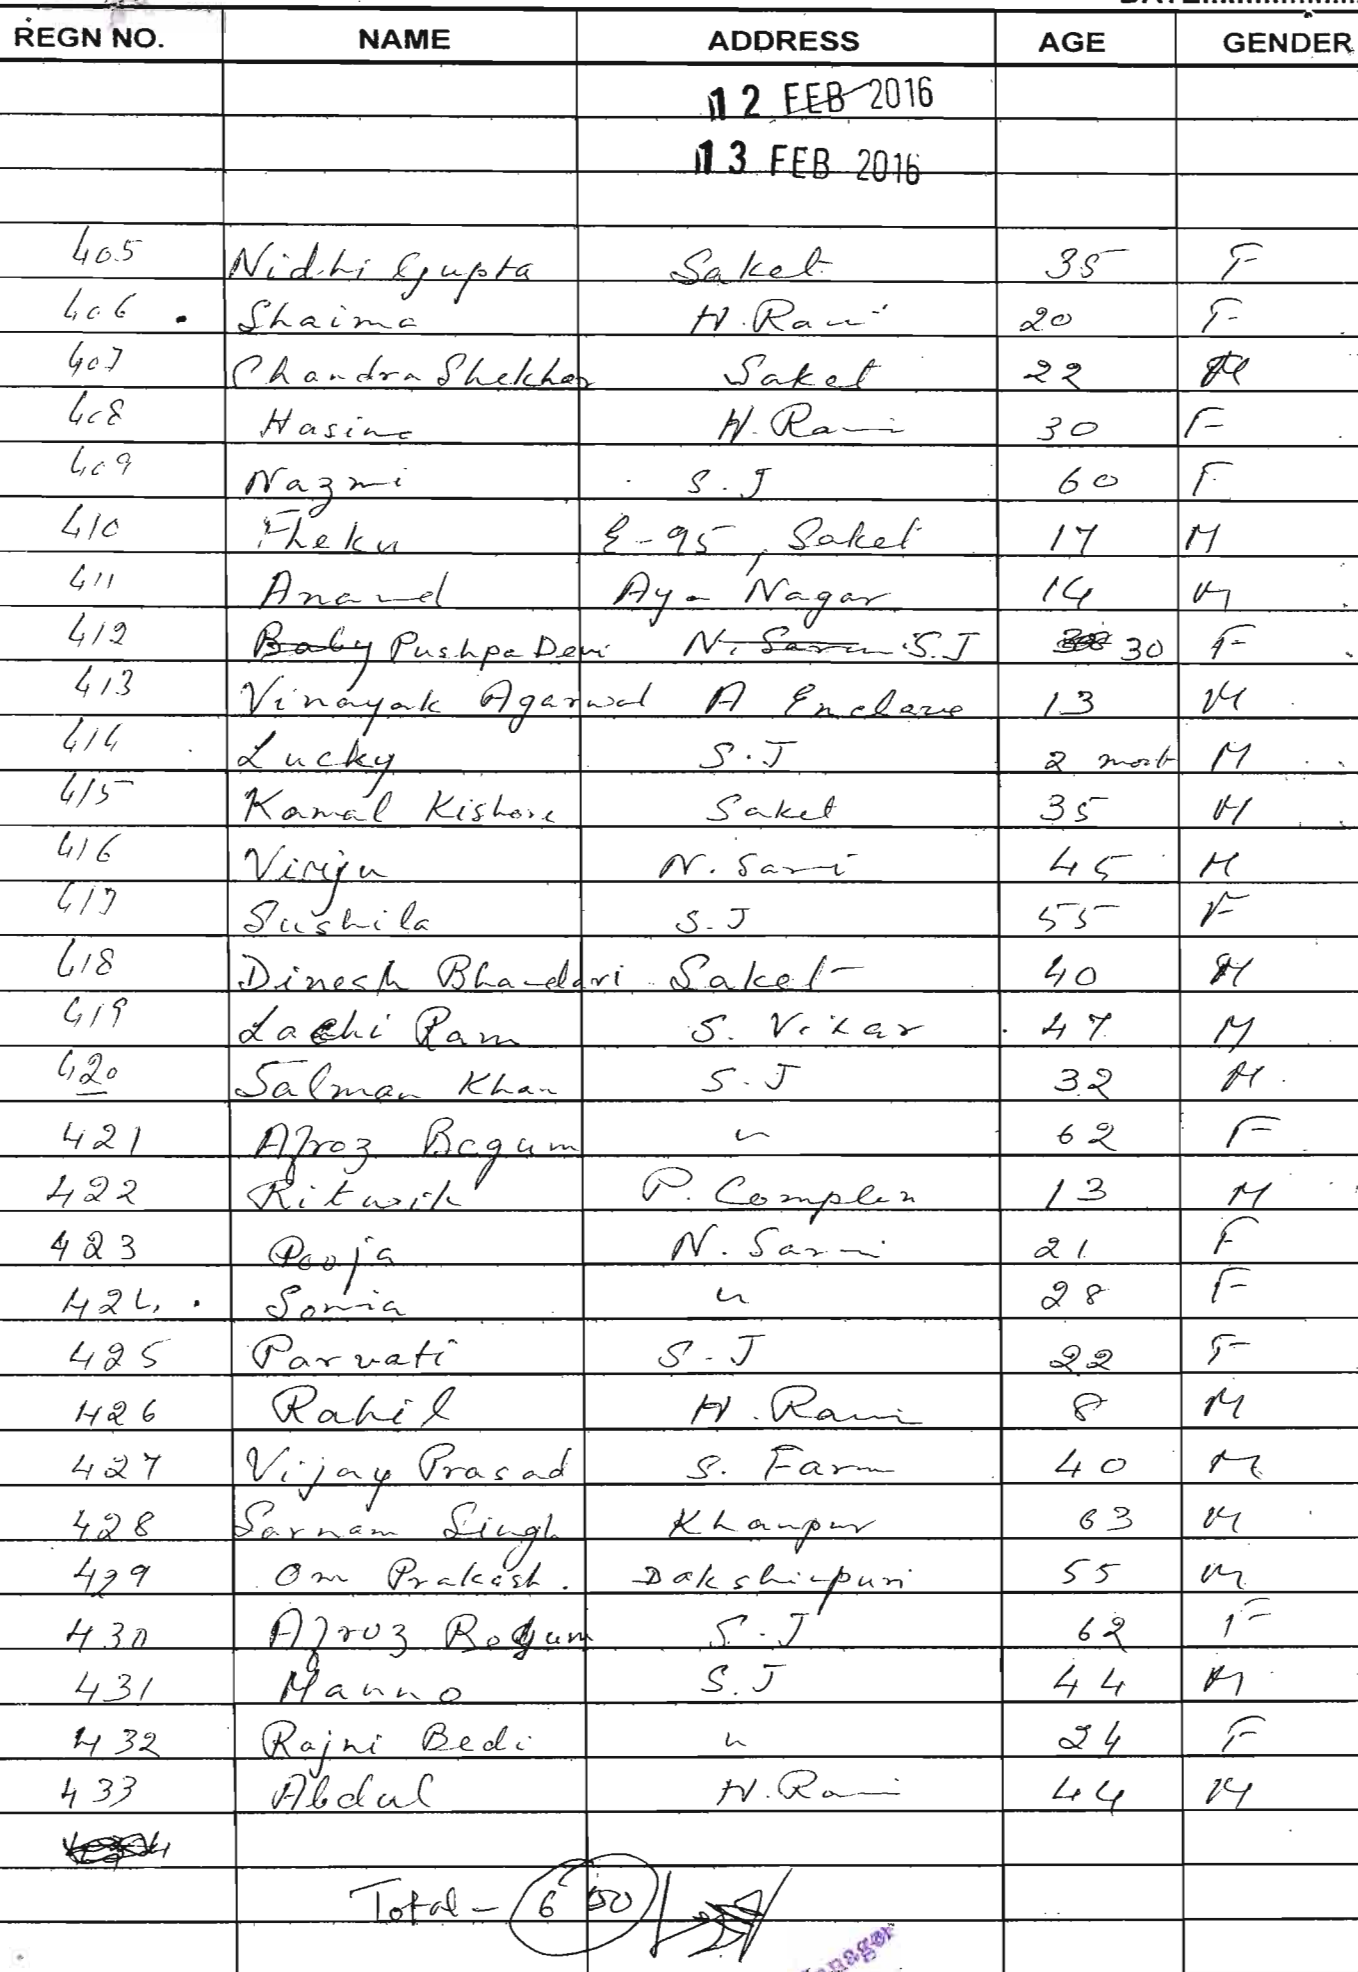 REGN NO. NAME ADDRESS AGE GENDER
12 FEB 2016
13 FEB 2016
405 Nidhi Gupta Saket 35 F
406 Shaima H. Rani 20 F
407 Chandra Shekhar Saket 22 M
408 Hasina H. Rani 30 F
409 Nazmi S.J 60 F
410 Theku E-95, Saket 17 M
411 Anand Aya Nagar 14 M
412 Baby Pushpa Devi N. Sarai S.J 30 F
413 Vinayak Agarwal A Enclave 13 M
414 Lucky S.J 2 M
415 Kamal Kishore Saket 35 M
416 N. Sarai 45 M
417 Sushila S.J 55 F
418 Dinesh Bhandari Saket 40 M
419 Lachi Ram S. Vihar 47 M
420 Salman Khan S.J 32 M
421 Afroz Begum " 62 F
422 Ritwik P. Complex 13 M
423 Pooja N. Sarai 21 F
424 Sonia " 28 F
425 Parvati S.J 22 F
426 Rahil H. Rani 8 M
427 Vijay Prasad S. Farm 40 M
428 Sarnam Singh Khanpur 63 M
429 Om Prakash. Dakshinpuri 55 M
430 Afroz Begum S.J 62 F
431 Manno S.J 44 M
432 Rajni Bedi " 24 F
433 Abdul H. Rani 44 M
Total -